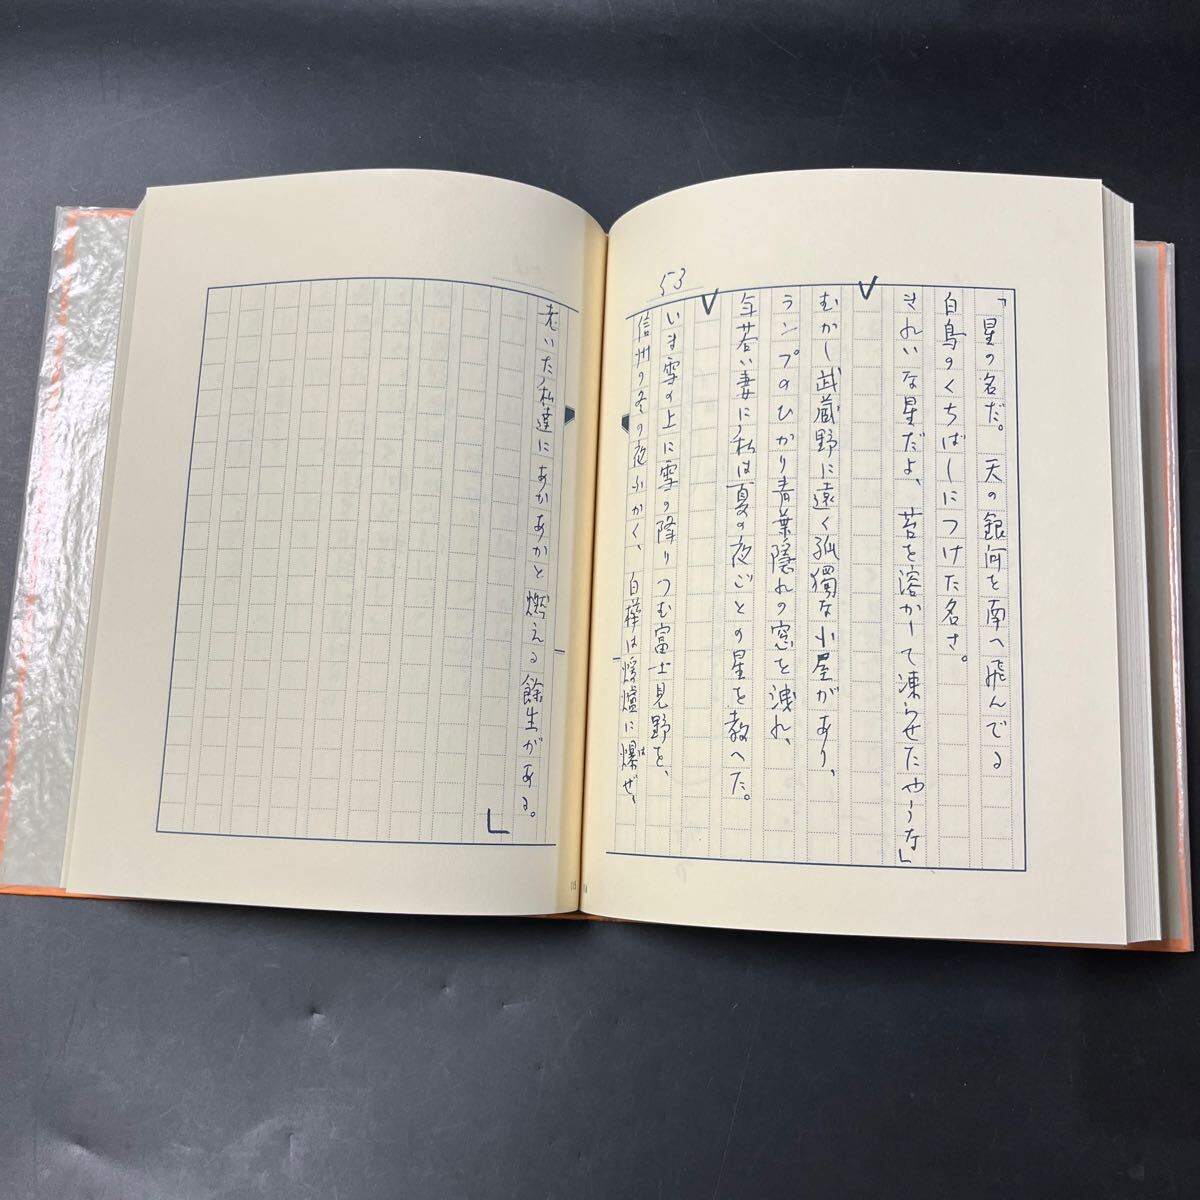 53
「星の名だ。天の銀河を南へ飛んでる
白鳥のくちばしにつけた名さ。
きれいな星だよ、苔を溶かして凍らせたやうな」
むかし武蔵野に遠く孤獨な小屋があり、
ランプのひかり青葉隠れの窓を洩れ、
年若い妻に私は夏の夜ごとの星を教へた。
いま雪の上に雪の降りつむ富士見野を、
信州の冬の夜ふかく、白樺は煖爐に爆ぜ、
は
老いた私達にあかあかと燃える餘生がある。